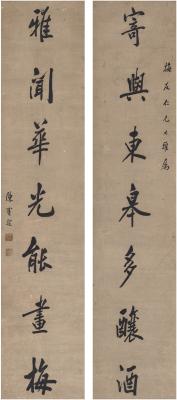 梅友仁兄大雅屬
寄興東皋多釀酒
雅聞華光能畫梅
陳寶琛